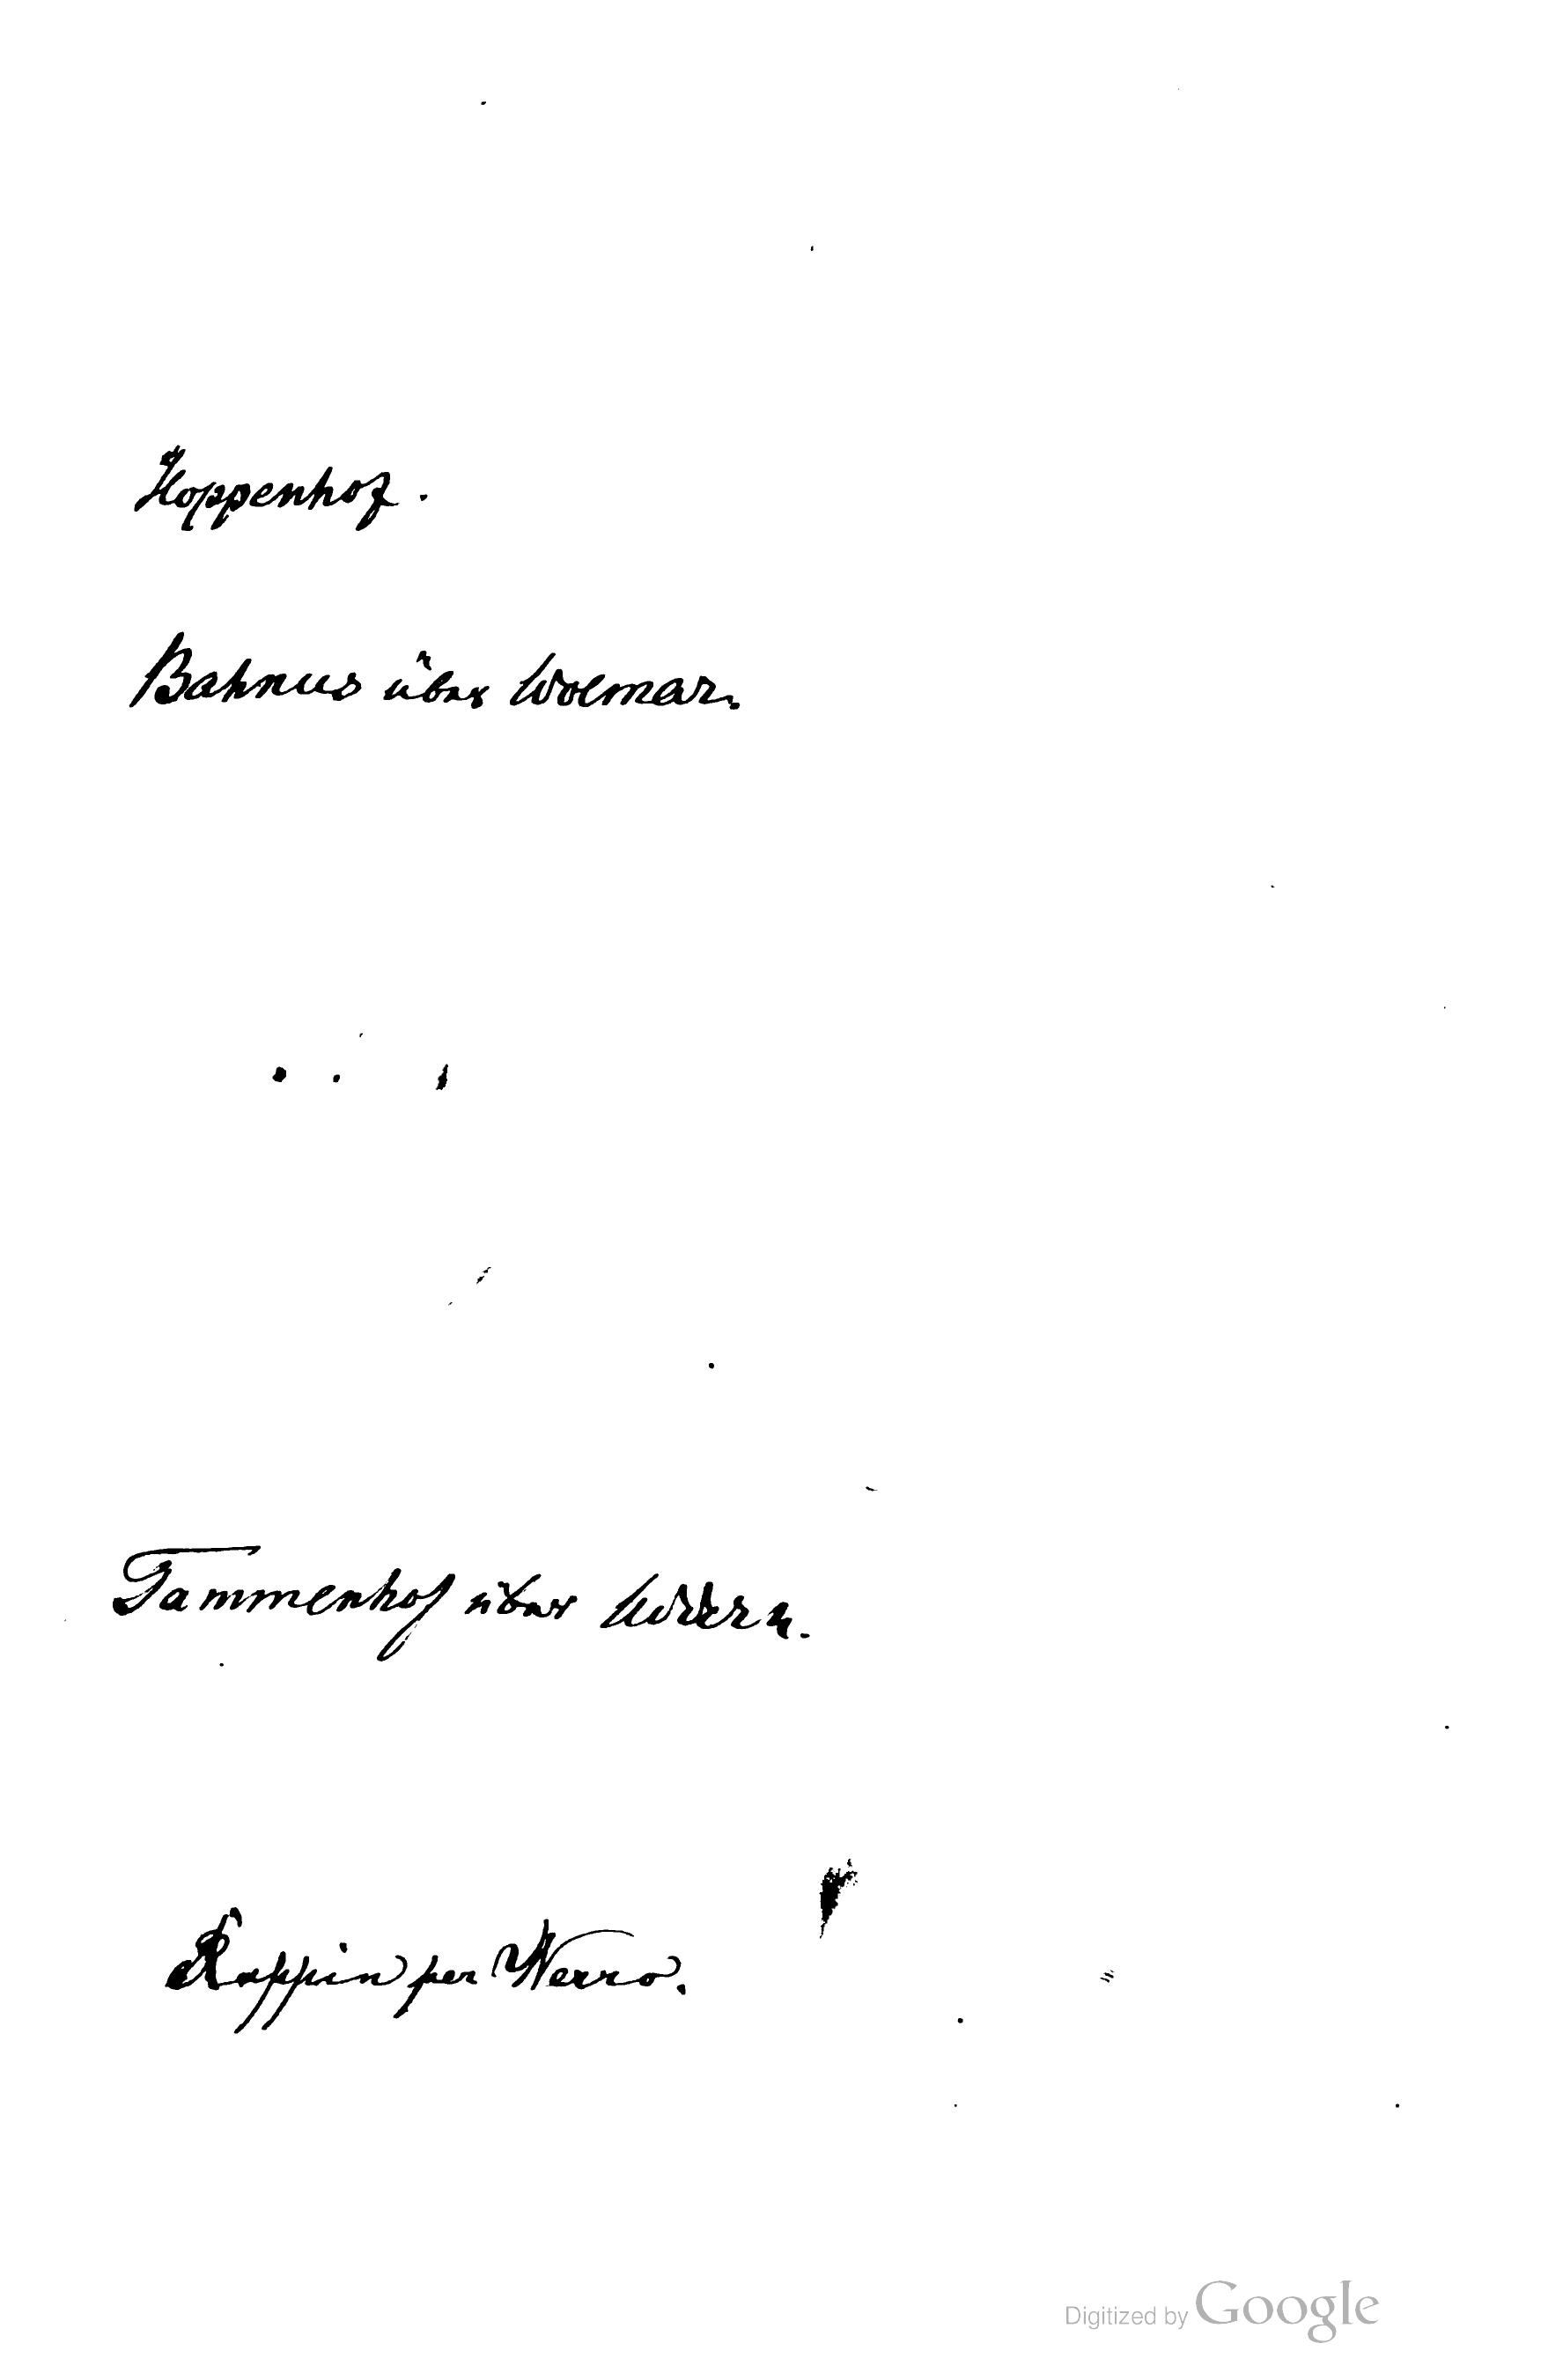 Koppenhof.
Bahnus über Wolmar.
Tammenhof über Uexküll.
Rappin per Werro.
Digitized by Google